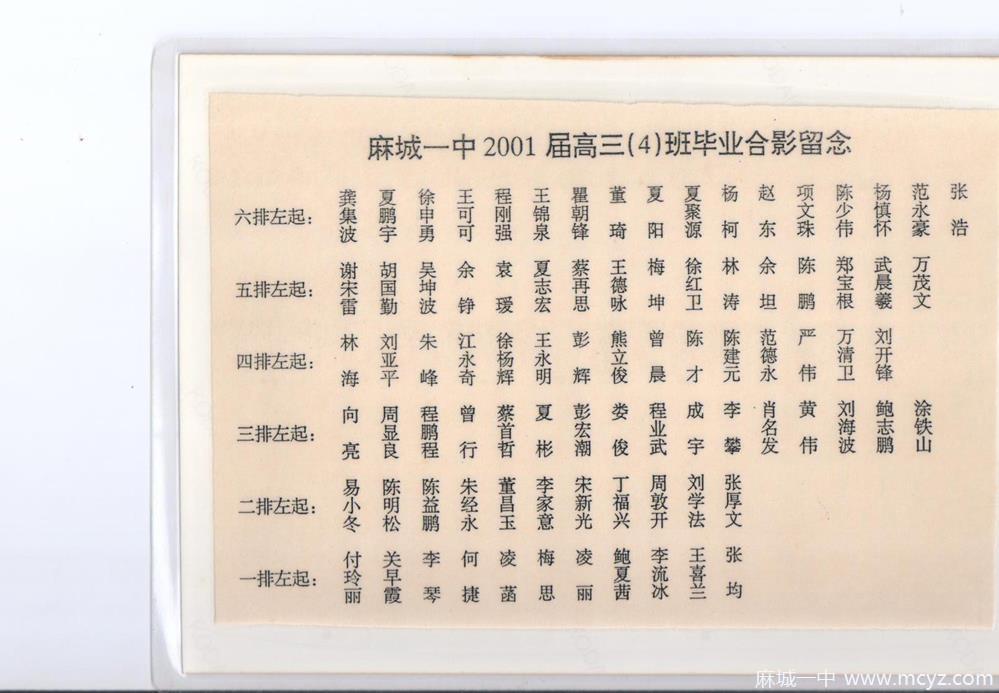 麻城一中 2001 届高三(4)班毕业合影留念
六排左起： 龚集波 夏鹏宇 徐申勇 王可可 程刚强 王锦泉 瞿朝锋 董琦 夏阳 夏聚源 杨柯 赵东 项文珠 陈少伟 杨慎怀 范永豪 张浩
五排左起： 谢宋雷 胡国勤 吴坤波 余铮 袁瑷 夏志宏 蔡再思 王德咏 梅坤 徐红卫 林涛 余坦 陈鹏 郑宝根 武晨羲 万茂文
四排左起： 林海 刘亚平 朱峰 江永奇 徐杨辉 王永明 彭辉 熊立俊 曾晨 陈才 陈建元 范德永 严伟 万清卫 刘开锋
三排左起： 向亮 周显良 程鹏程 曾行 蔡首哲 夏彬 彭宏潮 娄俊 程业武 成宇 李攀 肖名发 黄伟 刘海波 鲍志鹏 涂铁山
二排左起： 易小冬 陈明松 陈益鹏 朱经永 董昌玉 李家意 宋新光 丁福兴 周敦开 刘学法 张厚文
一排左起： 付玲丽 关早霞 李琴 何捷 凌菡 梅思 凌丽 鲍夏茜 李流冰 王喜兰 张均
麻城一中 www.mcyz.com